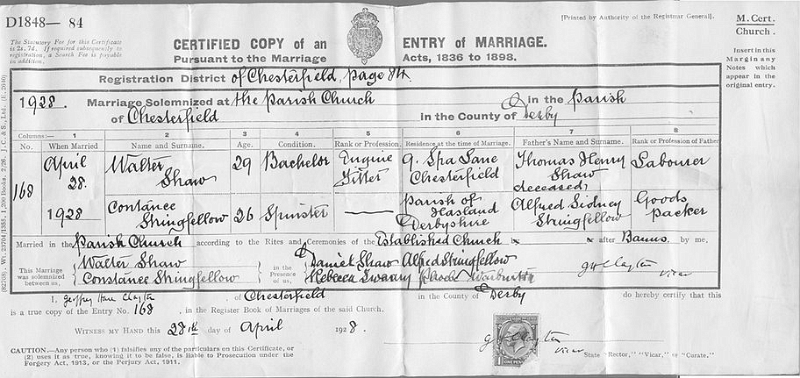 D1848— 84
[Printed by Authority of the Registrar General].
M. Cert.
Church.
The Statutory Fee for this Certificate
is 2s. 7d. If required subsequently to
registration, a Search Fee is payable
in addition.
CERTIFIED COPY of an ENTRY OF MARRIAGE.
Pursuant to the Marriage Acts, 1836 to 1898.
Insert in this
Margin any
Notes which
appear in the
original entry.
Registration District of Chesterfield, page 84
1928. Marriage Solemnized at the Parish Church in the Parish
of Chesterfield in the County of Derby
Columns:— 1 2 3 4 5 6 7 8
No. When Married Name and Surname. Age. Condition. Rank or Profession. Residence at the time of Marriage. Father's Name and Surname. Rank or Profession of Father
168 April 28. 1928
Walter Shaw 29 Bachelor Engine Fitter 9. Spa Lane Chesterfield Thomas Henry Shaw deceased, Labourer
Constance Stringfellow 26 Spinster — Parish of Hasland Derbyshire Alfred Sidney Stringfellow Goods Packer
Married in the Parish Church according to the Rites and Ceremonies of the Established Church after Banns by me,
This Marriage was solemnized between us,
Walter Shaw
Constance Stringfellow
in the Presence of us,
Daniel Shaw Alfred Stringfellow
Rebecca
G H Clayton
Vicar
I, Geoffrey Hare Clayton, of Chesterfield in the County of Derby do hereby certify that this
is a true copy of the Entry No. 168, in the Register Book of Marriages of the said Church.
WITNESS MY HAND this 28th day of April 1928.
G H Clayton
Vicar
CAUTION.—Any person who (1) falsifies any of the particulars on this Certificate, or
(2) uses it as true, knowing it to be false, is liable to Prosecution under the
Forgery Act, 1913, or the Perjury Act, 1911.
State "Rector," "Vicar," or "Curate."